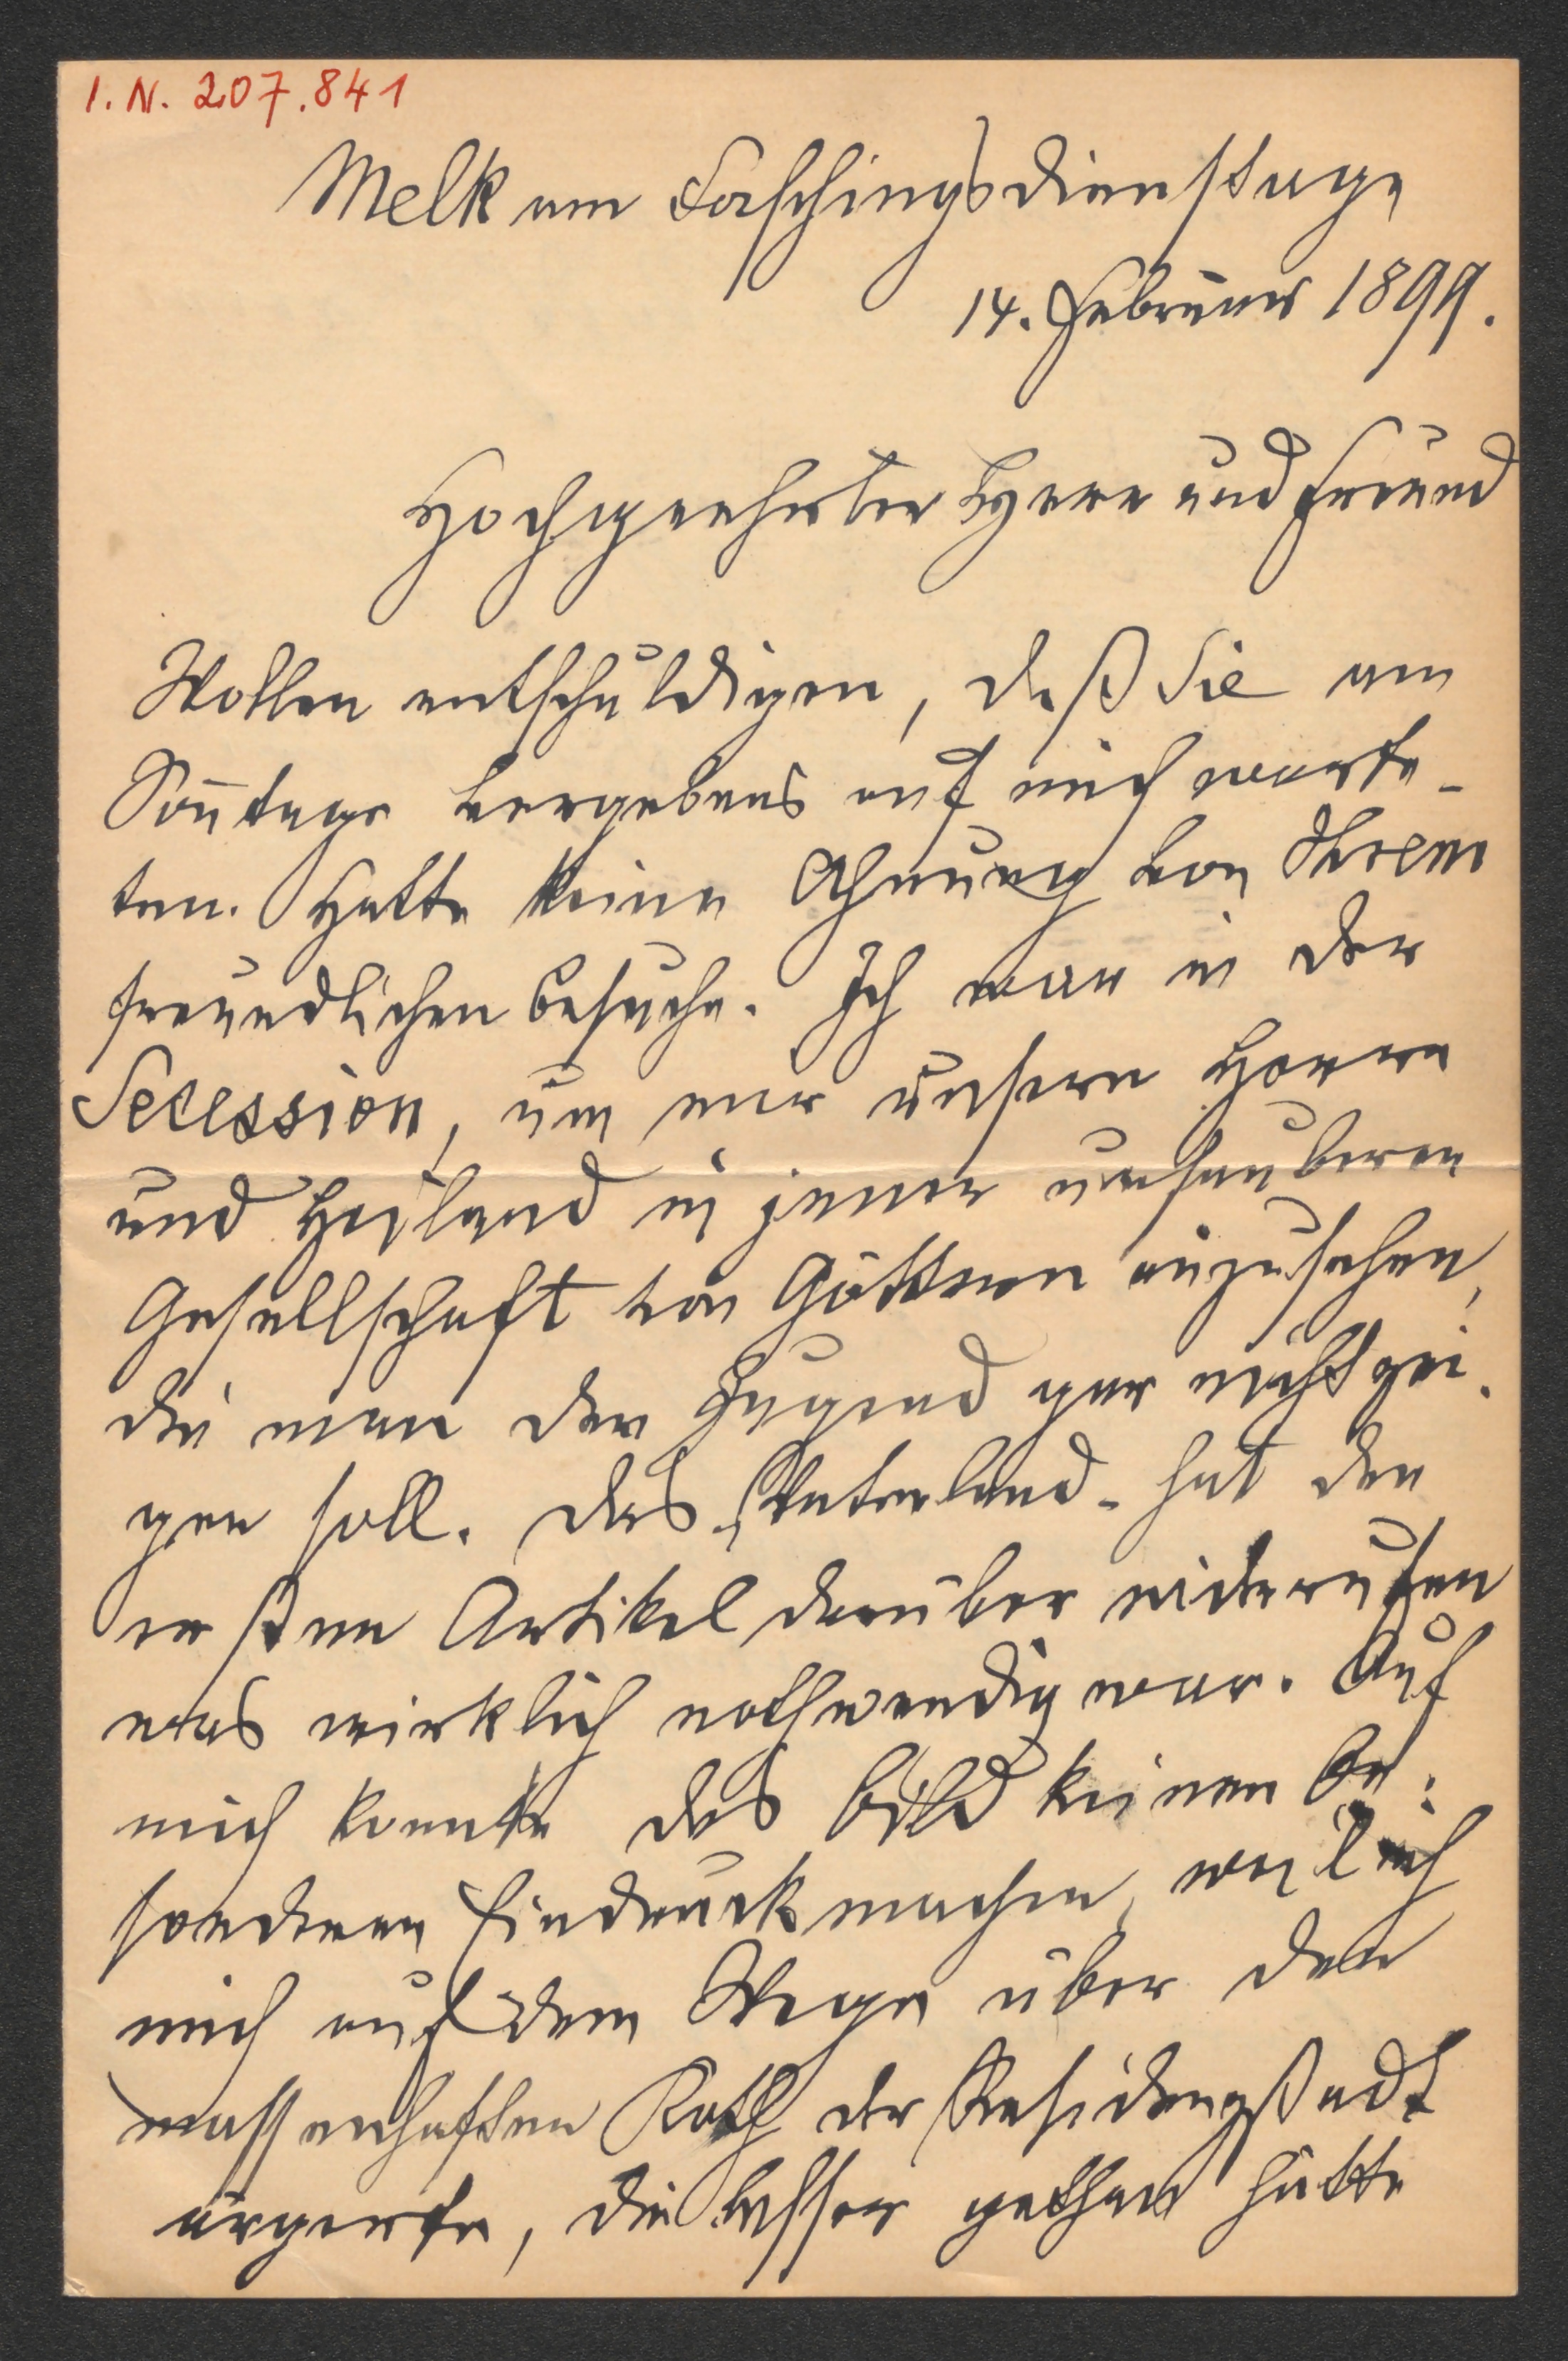 I. N. 207.841
Melk am Faschingsdienstage
14. Februar 1899.
Hochgeehrter Herr und Freund
Wollen entschuldigen, daß Sie am
Son̄tage vergebens auf mich warte-
ten. Hatte keine Ahnung von Ihrem
freundlichen Besuche. Ich war in der
Secession, um mir unsern Herrn
und Heiland in jener unsauberen
Gesellschaft von Göttern anzusehen,
die man der Jugend gar nicht zei-
gen soll. Das „Vaterland" hat den
ersten Artikel darüber widerrufen
was wirklich nothwendig war. Auf
mich konnte das Bild keinen be-
sonderen Eindruck machen, weil ich
mich auf dem Wege über den
massenhaften Koth der Residenzstadt
ärgerte, die besser gethan hätte